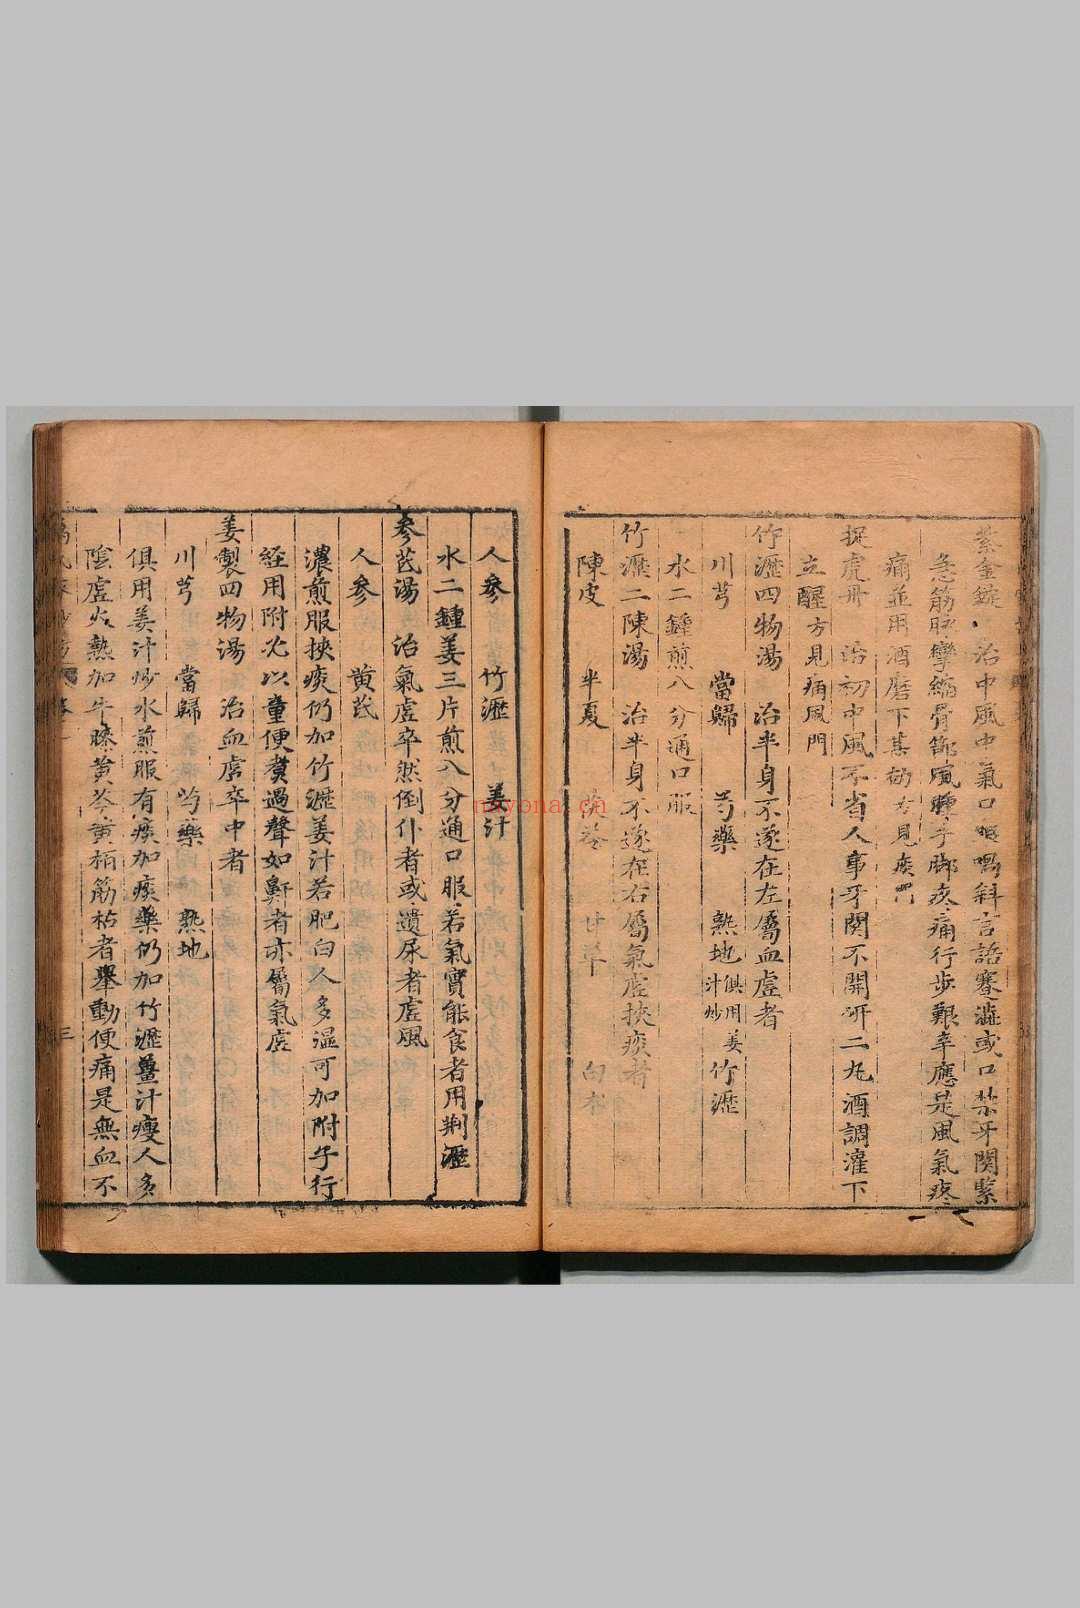 紫金錠　治中風中氣口眼喎斜言語蹇澁或口禁牙関緊
急筋脉攣縮骨節風腫手脚疼痛行步艱辛應是風氣疼
痛並用酒磨下其劾方見痰門
捉虎丹　治初中風不省人事牙関不開研二丸酒調灌下
立醒方見痛風門
竹瀝四物湯　治半身不遂在左屬血虚者
川芎　當歸　芍藥　熟地俱用姜汁炒　竹瀝
水二鍾煎八分通口服
竹瀝二陳湯　治半身不遂在右屬氣虚挾痰者
陳皮　半夏　茯苓　甘草　白术
人參　竹瀝　姜汁
水二鍾姜三片煎八分通口服若氣實能食者用荆瀝
參芪湯　治氣虚卒然倒仆者或遺尿者虚風
人參　黄芪
濃煎服挾痰仍加竹瀝姜汁若肥白人多湿可加附子行
経用附必以童便煮過聲如鼾者亦屬氣虚
姜製四物湯　治血虚卒中者
川芎　當歸　芍藥　熟地
俱用姜汁炒水煎服有痰加痰藥仍加竹瀝薑汁瘦人多
隂虚火熱加牛膝黄芩黄栢筋枯者舉動便痛是無血不
三
nayona.cn